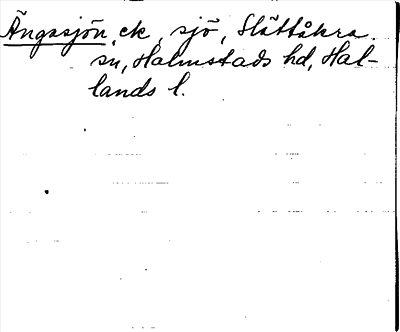 Ängasjön, ek, sjö, Slättåkra
sn, Halmstads hd, Hal-
lands l.